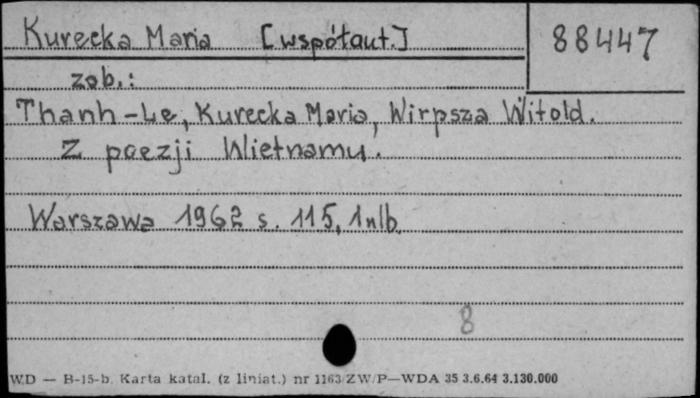 Kurecka Maria [współaut.] 88447
zob.:
Thanh-Le, Kurecka Maria, Wirpsza Witold.
Z poezji Wietnamu.
Warszawa 1962 s. 115, 1 nlb.
8
WD — B-15-b. Karta katal. (z liniat.) nr 1163/ZW/P—WDA 35 3.6.64 3.130.000